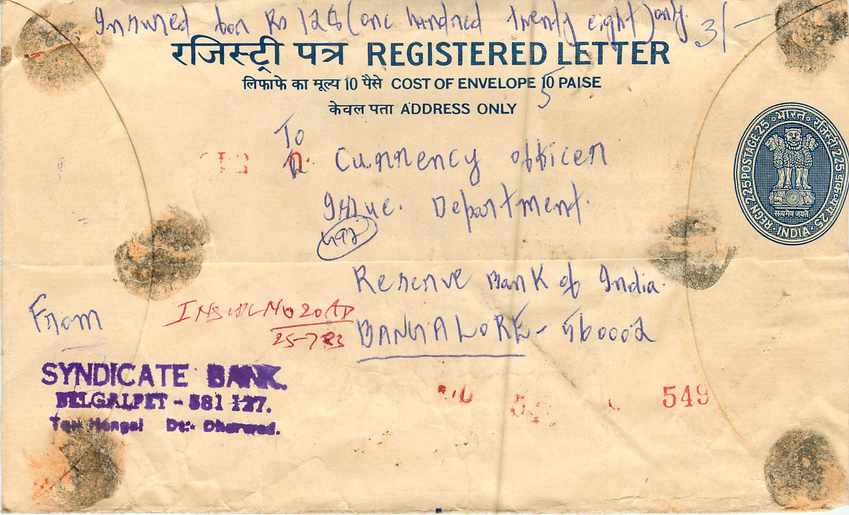 Insured for Rs 128 (one hundred twenty eight) only. 3/-
रजिस्ट्री पत्र REGISTERED LETTER
लिफाफे का मूल्य 10 पैसे COST OF ENVELOPE 10 PAISE
5
केवल पता ADDRESS ONLY
भारत रजिस्ट्री 2/25 डाक 25
REGN 2/25 POSTAGE 25
सत्यमेव जयते
INDIA
To
Currency officer
Issue. Department.
Reserve Bank of India.
BANGALORE - 560002
From
25-7-83
SYNDICATE BANK.
BELGALPET - 581 127.
Tq: Hangal Dt:- Dharwad.
549